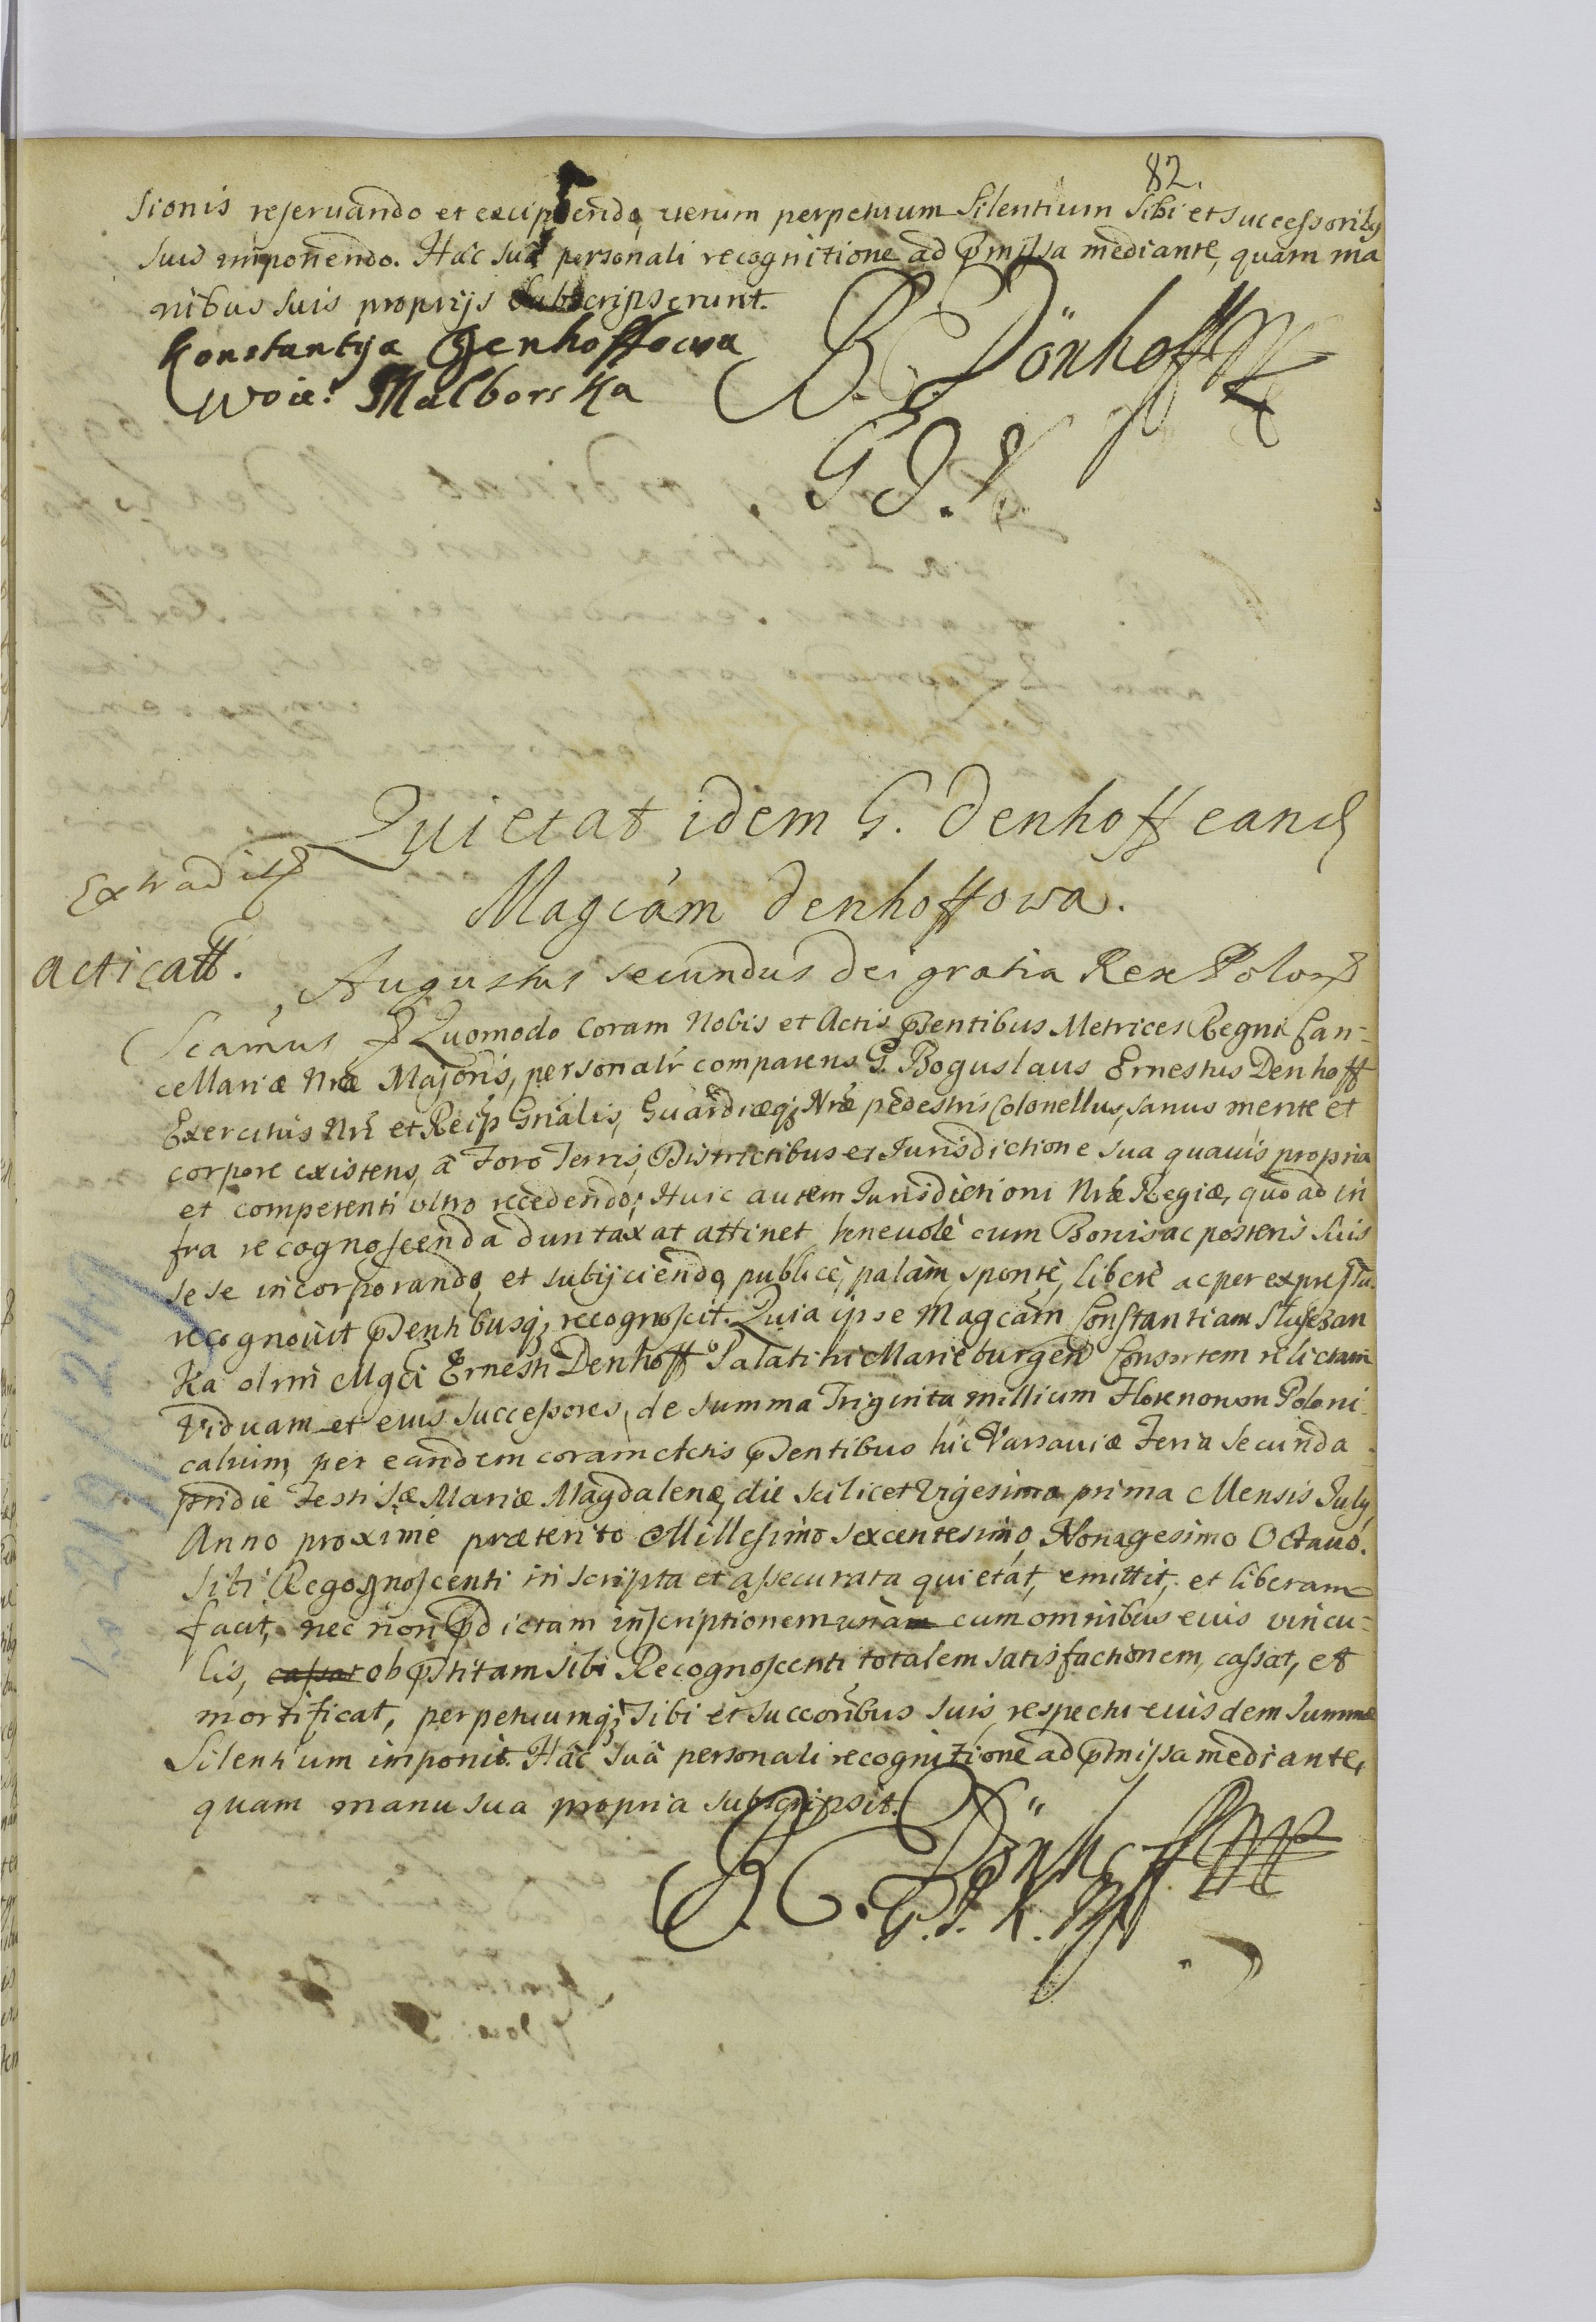 82.
sionis reservando et excipiendo, verum perpetuum silentium sibi et successoribꝯ
suis imponendo. Hâc suâ personali recognitione ad p̄missa mediante, quam ma
nibus suis proprijs subscripserunt.
Konstantija Denhoffowa
Woie: Malborska
B. E. Dönhoff
G
Quietat idem G. Denhoff eand
Magcám Denhoffowa.
Extradit
acticatt.
Augustus secundus dei gratia Rex Polon
Scamus Quomodo coram Nobis et Actis p̄sentibus Metrices Regni Can-
cellariæ Nr̄æ Majoris, personalr̄ comparens G. Boguslaus Ernestus Denhoff
Exercitus Nr̄i et Reip Gn̄alis, Guardiæq; Nr̄æ pedestris Colonellus, sanus mente et
corpore existens, â Foro Terris, Districtibus et Jurisdictione sua quavis propria
et competenti ultro recedendo; Huic autem Jurisdictioni Nr̄æ Regiæ, quo ad in
fra recognoscenda duntaxat attinet benevolè cum Bonis ac posteris suis
sese incorporando, et subijciendo, publicè, palàm, spontè, liberè ac per expressū
recognovit p̄sentibusq; recognoscit. Quia ipse Magcam Constantiam Sluszan
ka olim Mgci Ernesti Denhoff Palatini Marieburgen Consortem relictam
Viduam et eius successores, de summa Triginta millium Florenorum Poloni-
calium, per eandem coram Actis p̄sentibus hic Varsaviæ Feria secunda
pridie Festi Sæ Mariæ Magdalenæ, die scilicet vigesima prima Mensis July,
Anno proximè præterito Millesimo sexcentesimo, Nonagesimo Octavo.
sibi Regognoscenti inscripta et assecurata quietat, emittit, et liberam
facit, nec non p̄dictam inscriptionem una cum omnibus eius vincu-
lis, cassat ob p̄stitam sibi Recognoscenti totalem satisfactionem, cassat, et
mortificat, perpetuumq; sibi et succoribus suis, respectu eiusdem summæ
Silentium imponit. Hâc suâ personali recognitione ad p̄missa mediante,
quam manu sua propria subscripsit.
B. E. Dönhoff
G. J. K. mp